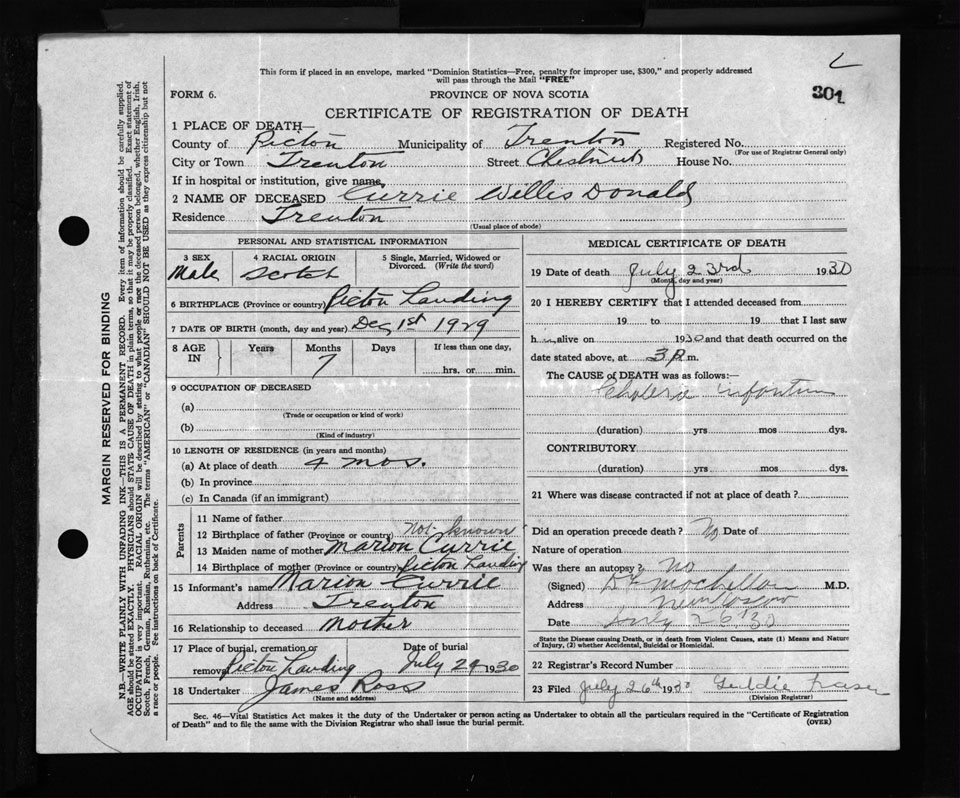 This form if placed in an envelope, marked "Dominion Statistics—Free, penalty for improper use, $300," and properly addressed
will pass through the Mail "FREE"
FORM 6.
PROVINCE OF NOVA SCOTIA
301
CERTIFICATE OF REGISTRATION OF DEATH
1 PLACE OF DEATH—
County of Picton Municipality of Trenton Registered No.
(For use of Registrar General only)
City or Town Trenton Street Chestnut House No.
If in hospital or institution, give name,
2 NAME OF DECEASED Currie Willis Donald
Residence Trenton
(Usual place of abode)
PERSONAL AND STATISTICAL INFORMATION
3 SEX
Male
4 RACIAL ORIGIN
Scotch
5 Single, Married, Widowed or
Divorced. (Write the word)
6 BIRTHPLACE (Province or country) Picton Landing
7 DATE OF BIRTH (month, day and year) Dec 1st 1929
8 AGE
IN
Years
Months
7
Days
If less than one day,
hrs. or min.
9 OCCUPATION OF DECEASED
(a)
(Trade or occupation or kind of work)
(b)
(Kind of industry)
10 LENGTH OF RESIDENCE (in years and months)
(a) At place of death 4 mos.
(b) In province
(c) In Canada (if an immigrant)
Parents
11 Name of father
12 Birthplace of father (Province or country) not known
13 Maiden name of mother Marion Currie
14 Birthplace of mother (Province or country) Picton Landing
15 Informant's name Marion Currie
Address Trenton
16 Relationship to deceased Mother
17 Place of burial, cremation or Date of burial
removal Picton Landing July 24 1930
18 Undertaker James Ross
(Name and address)
MEDICAL CERTIFICATE OF DEATH
19 Date of death July 23rd 1930
(Month, day and year)
20 I HEREBY CERTIFY that I attended deceased from
19 to 19 that I last saw
him alive on 1930 and that death occurred on the
date stated above, at 3 P.m.
The CAUSE of DEATH was as follows:—
Cholera infantum
(duration) yrs mos dys.
CONTRIBUTORY
(duration) yrs. mos. dys.
21 Where was disease contracted if not at place of death?
Did an operation precede death? No Date of
Nature of operation
Was there an autopsy? No
(Signed) Dr M.D.
Address
Date July 26 '30
State the Disease causing Death, or in death from Violent Causes, state (1) Means and Nature
of Injury, (2) whether Accidental, Suicidal or Homicidal.
22 Registrar's Record Number
23 Filed July 26th 1930 Fraser
(Division Registrar)
Sec. 46—Vital Statistics Act makes it the duty of the Undertaker or person acting as Undertaker to obtain all the particulars required in the "Certificate of Registration
of Death" and to file the same with the Division Registrar who shall issue the burial permit.
(OVER)
MARGIN RESERVED FOR BINDING
N.B.—WRITE PLAINLY WITH UNFADING INK—THIS IS A PERMANENT RECORD. Every item of information should be carefully supplied.
AGE should be stated EXACTLY. PHYSICIANS should STATE CAUSE OF DEATH in plain terms, so that it may be properly classified. Exact statement of
OCCUPATION is very important. RACIAL ORIGIN will be described by stating to what people or race the deceased person belonged, whether English, Irish,
Scotch, French, German, Russian, Ruthenian, etc. The terms "AMERICAN" or "CANADIAN" SHOULD NOT BE USED as they express citizenship but not
a race or people. See instructions on back of Certificate.